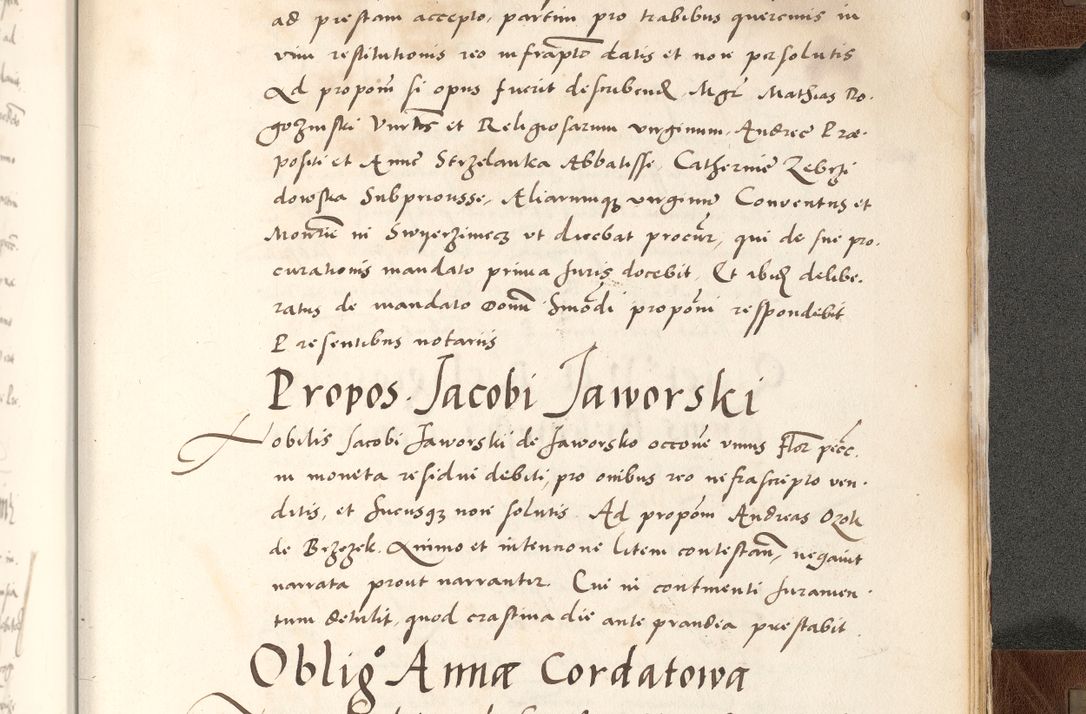 ad prestam accepto, partim pro trabibus quercinis in
vim restitutionis reo infrapto datis et non persolutis
Ad proponi si opus fuerit describend. Mgr Mathias Ro-
gozinski Vnrlis et Religiosarum virginum, Andree Præ-
positi et Anne Strzelanka Abbatisse, Catherine Zebrzi
dowska Subpriorisse, Aliarumq virginu Conventus et
Monrii in Swyerziniecz ut dicebat procur, qui de sue pro-
curationis mandato prima Juris docebit. Et ibid delibe-
ratus de mandato Domi proponi respondebit
Presentibus notariis
Propos. Jacobi Jaworski
Nobilis Jacobi Jaworski de Jaworsko occone unius Flor pecc.
in moneta residui debiti, pro ouibus reo infrascripto ven-
ditis, et hucusq non solutis. Ad propom Andreas Ozok
de Brzezek. Animo et intencione litem contestan, negavit
narrata prout narrantur. Cui in continenti Juramen-
tum detulit, quod crastina die ante prandia prestabit.
Oblig° Annæ Cordatowa